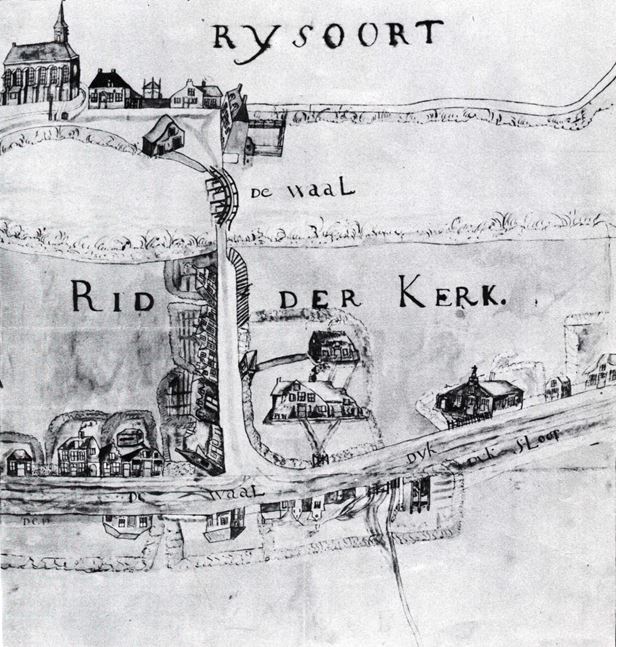 RYSOORT
DE WAAL
RID DER KERK.
DYK
SLOOP
DE WAAL